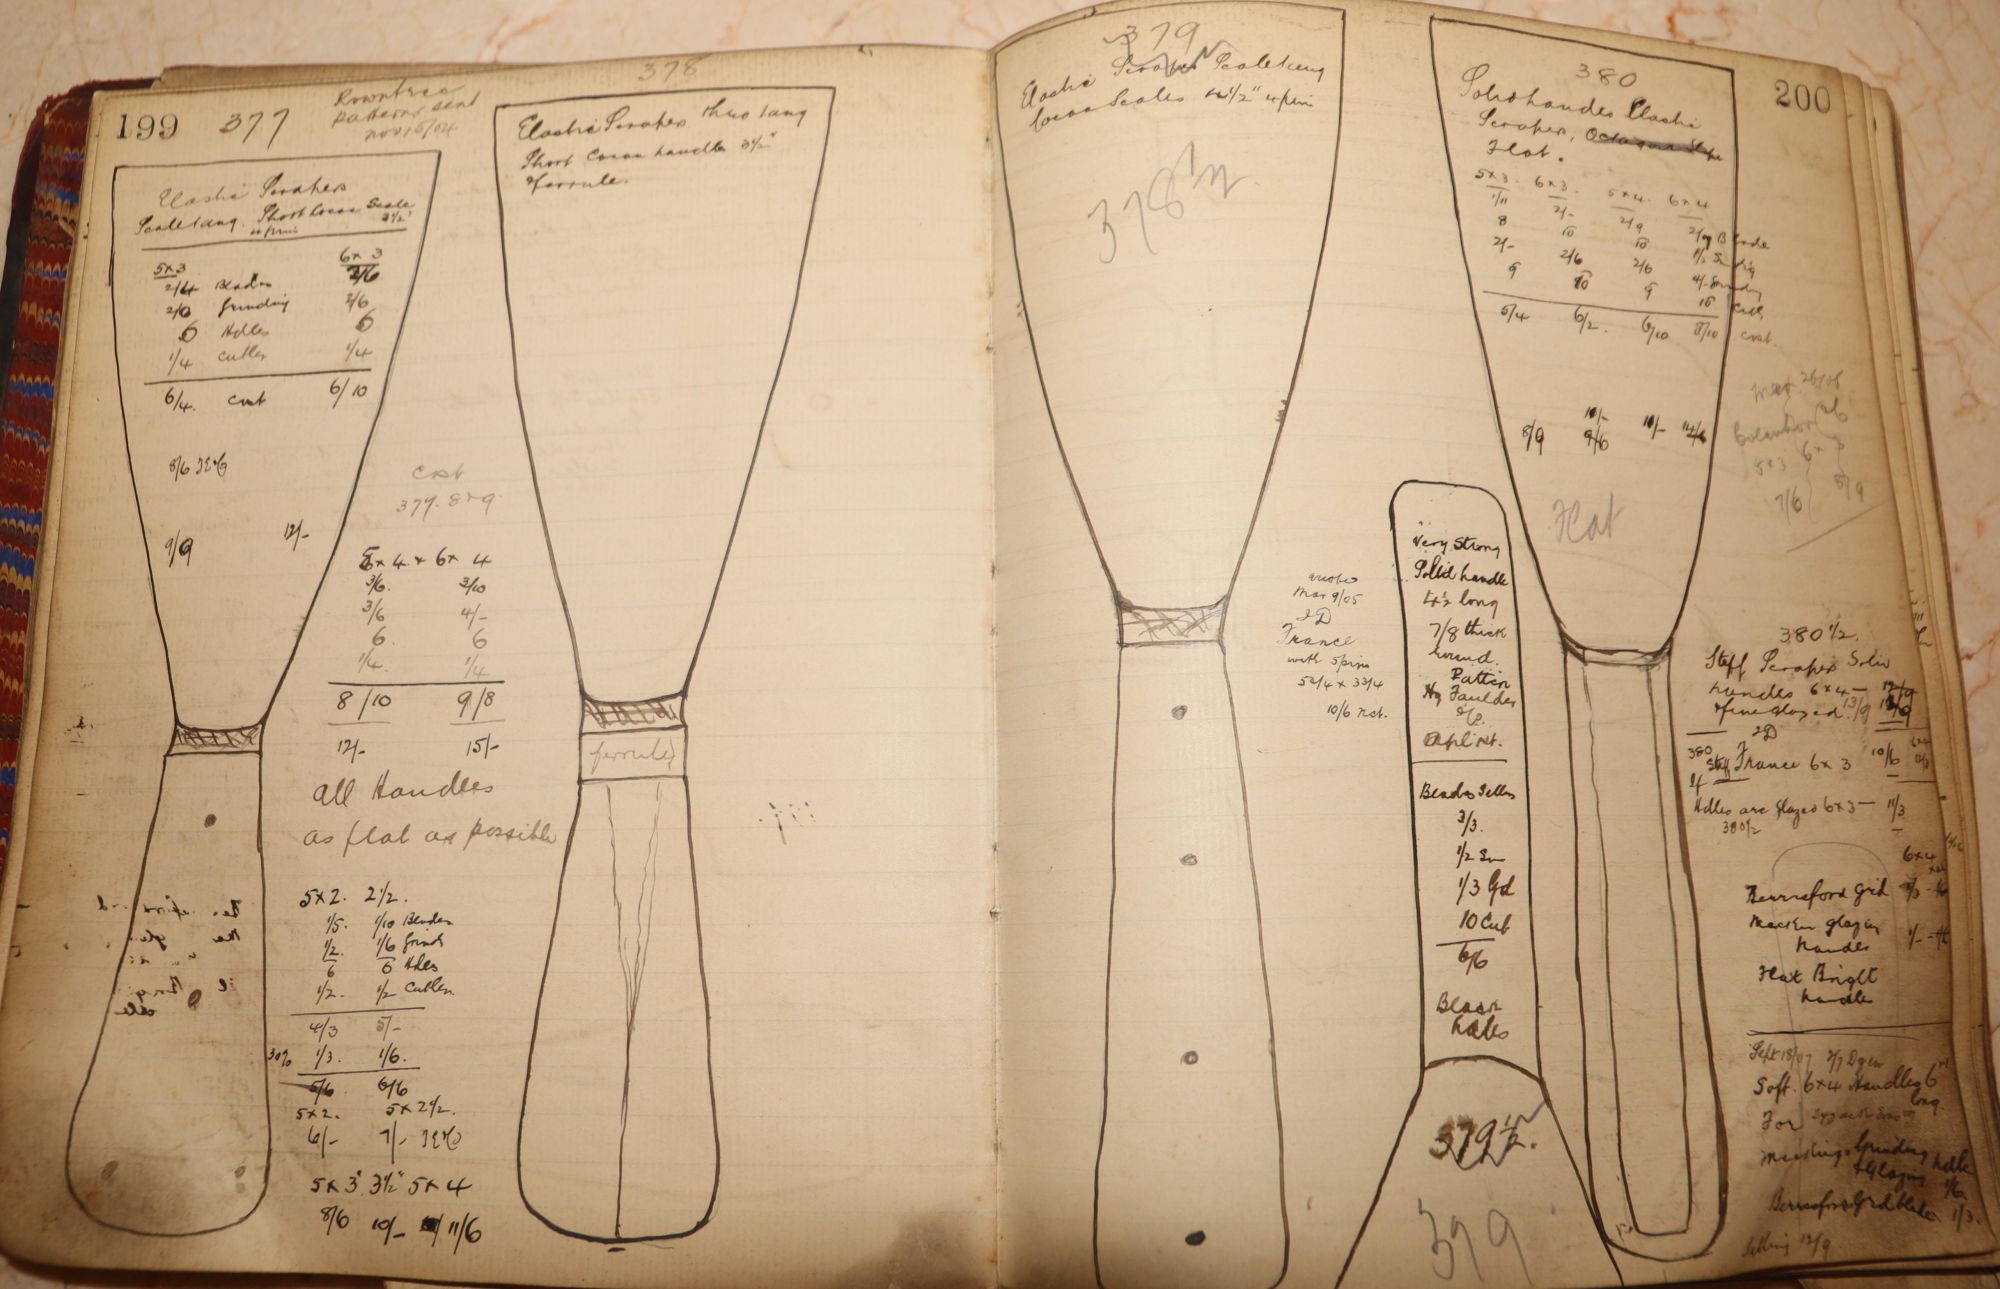 199 377
Rowntree
patterns sent
Nov 15/04
Elastic Scrapers
Scale tang. Short Cocoa Scale
3½"
5 x 3 6 x 3
2/4 Blades 2/6
2/0 Grinding 2/6
6 Hdles 6
1/4 Cutler 1/4
6/4. Cost 6/10
8/6
9/9 12/-
Cost
377. 8 & 9
5 x 4 & 6 x 4
3/6. 3/10
3/6 4/-
6. 6
1/4. 1/4
8/10 9/8
12/- 15/-
all Handles
as flat as possible
5 x 2. 2½.
1/5. 1/10 Blades
1/2. 1/6 Grind
6 6 Hdles
1/2. 1/2 Cutler.
4/3 5/-
30% 1/3. 1/6.
5/6 6/6
5 x 2. 5 x 2½.
6/- 7/-
5 x 3" 3½" 5 x 4
8/6 10/- 11/6
378
Elastic Scraper thro tang
Short Cocoa handle 3½"
& ferrule.
ferrule
379
Elastic Scraper Scale tang
Cocoa Scales 4½" 4 pins
378½
another
Mar 9/05
JD
France
with 5 pins
5¾ x 3¾
10/6 net.
Very Strong
Solid handle
4½ long
7/8 thick
round.
Pattern
Hy Faulder
Blades Sellers
3/3.
1/2 Sm
1/3 Gd
10 Cut
6/6
Black
hdles
379½.
379
380
200
Solid handles Elastic
Scraper, Octagon Shape
Flat.
5 x 3. 6 x 3. 5 x 4. 6 x 4
1/11 2/- 2/9 2/9 Blade
8 10 10 1/2 Smithg
2/- 2/6 2/6 4/- Grinding
9 10 9 10 Cut
5/4 6/2. 6/10 8/10 Cost.
10/-
8/9 9/6 10/- 14/6
Flat
Mar 26/08
5 x 3 6 x 3
7/6 8/9
380½.
Stiff Scraper Solid
handles 6 x 4 — 12/9
& fine glazed 13/9
JD
380 Stiff France 6 x 3 10/6
If
Hdles are glazed 6 x 3 — 11/3
380½
6 x 4
Berrisford Grd 1/3
Macken glazing
handles 1/-
Flat Bright
handle
Sept 18/07
Soft. 6 x 4 Handles 6"
long
For
Grinding hdle
& Glazing 1/6.
Berrisford Grd blade 1/3.
Selling 13/9